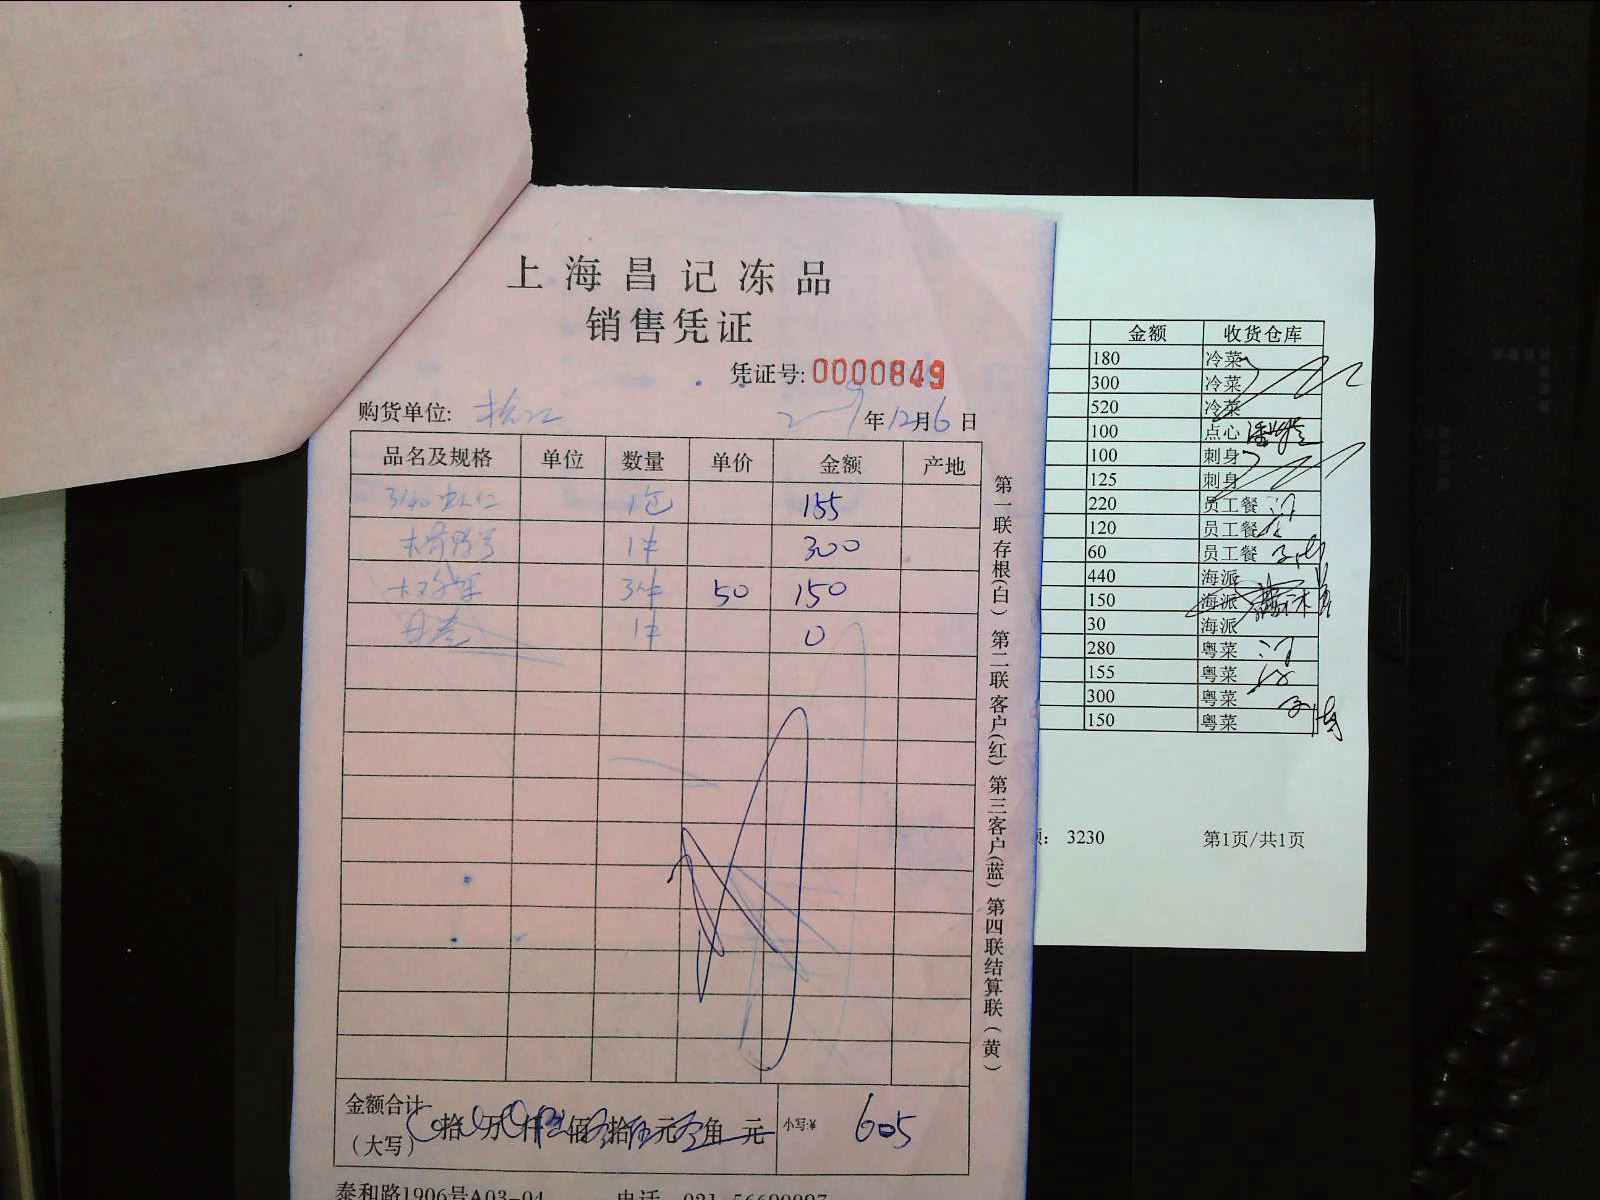 上海昌记冻品
销售凭证
凭证号: 0000849
购货单位: 年12月6日
品名及规格 单位 数量 单价 金额 产地
31/40虾仁 1包 155
1件 300
3件 50 150
1件 0
金额合计
(大写) 拾 万 仟 佰 拾 元 角 元 小写:¥ 605
泰和路1906号A03-04 电话 021-56690097
第一联存根(白) 第二联客户(红) 第三客户(蓝) 第四联结算联(黄)
金额 收货仓库
180 冷菜
300 冷菜
520 冷菜
100 点心
100 刺身
125 刺身
220 员工餐
120 员工餐
60 员工餐
440 海派
150 海派
30 海派
280 粤菜
155 粤菜
300 粤菜
150 粤菜
: 3230 第1页/共1页